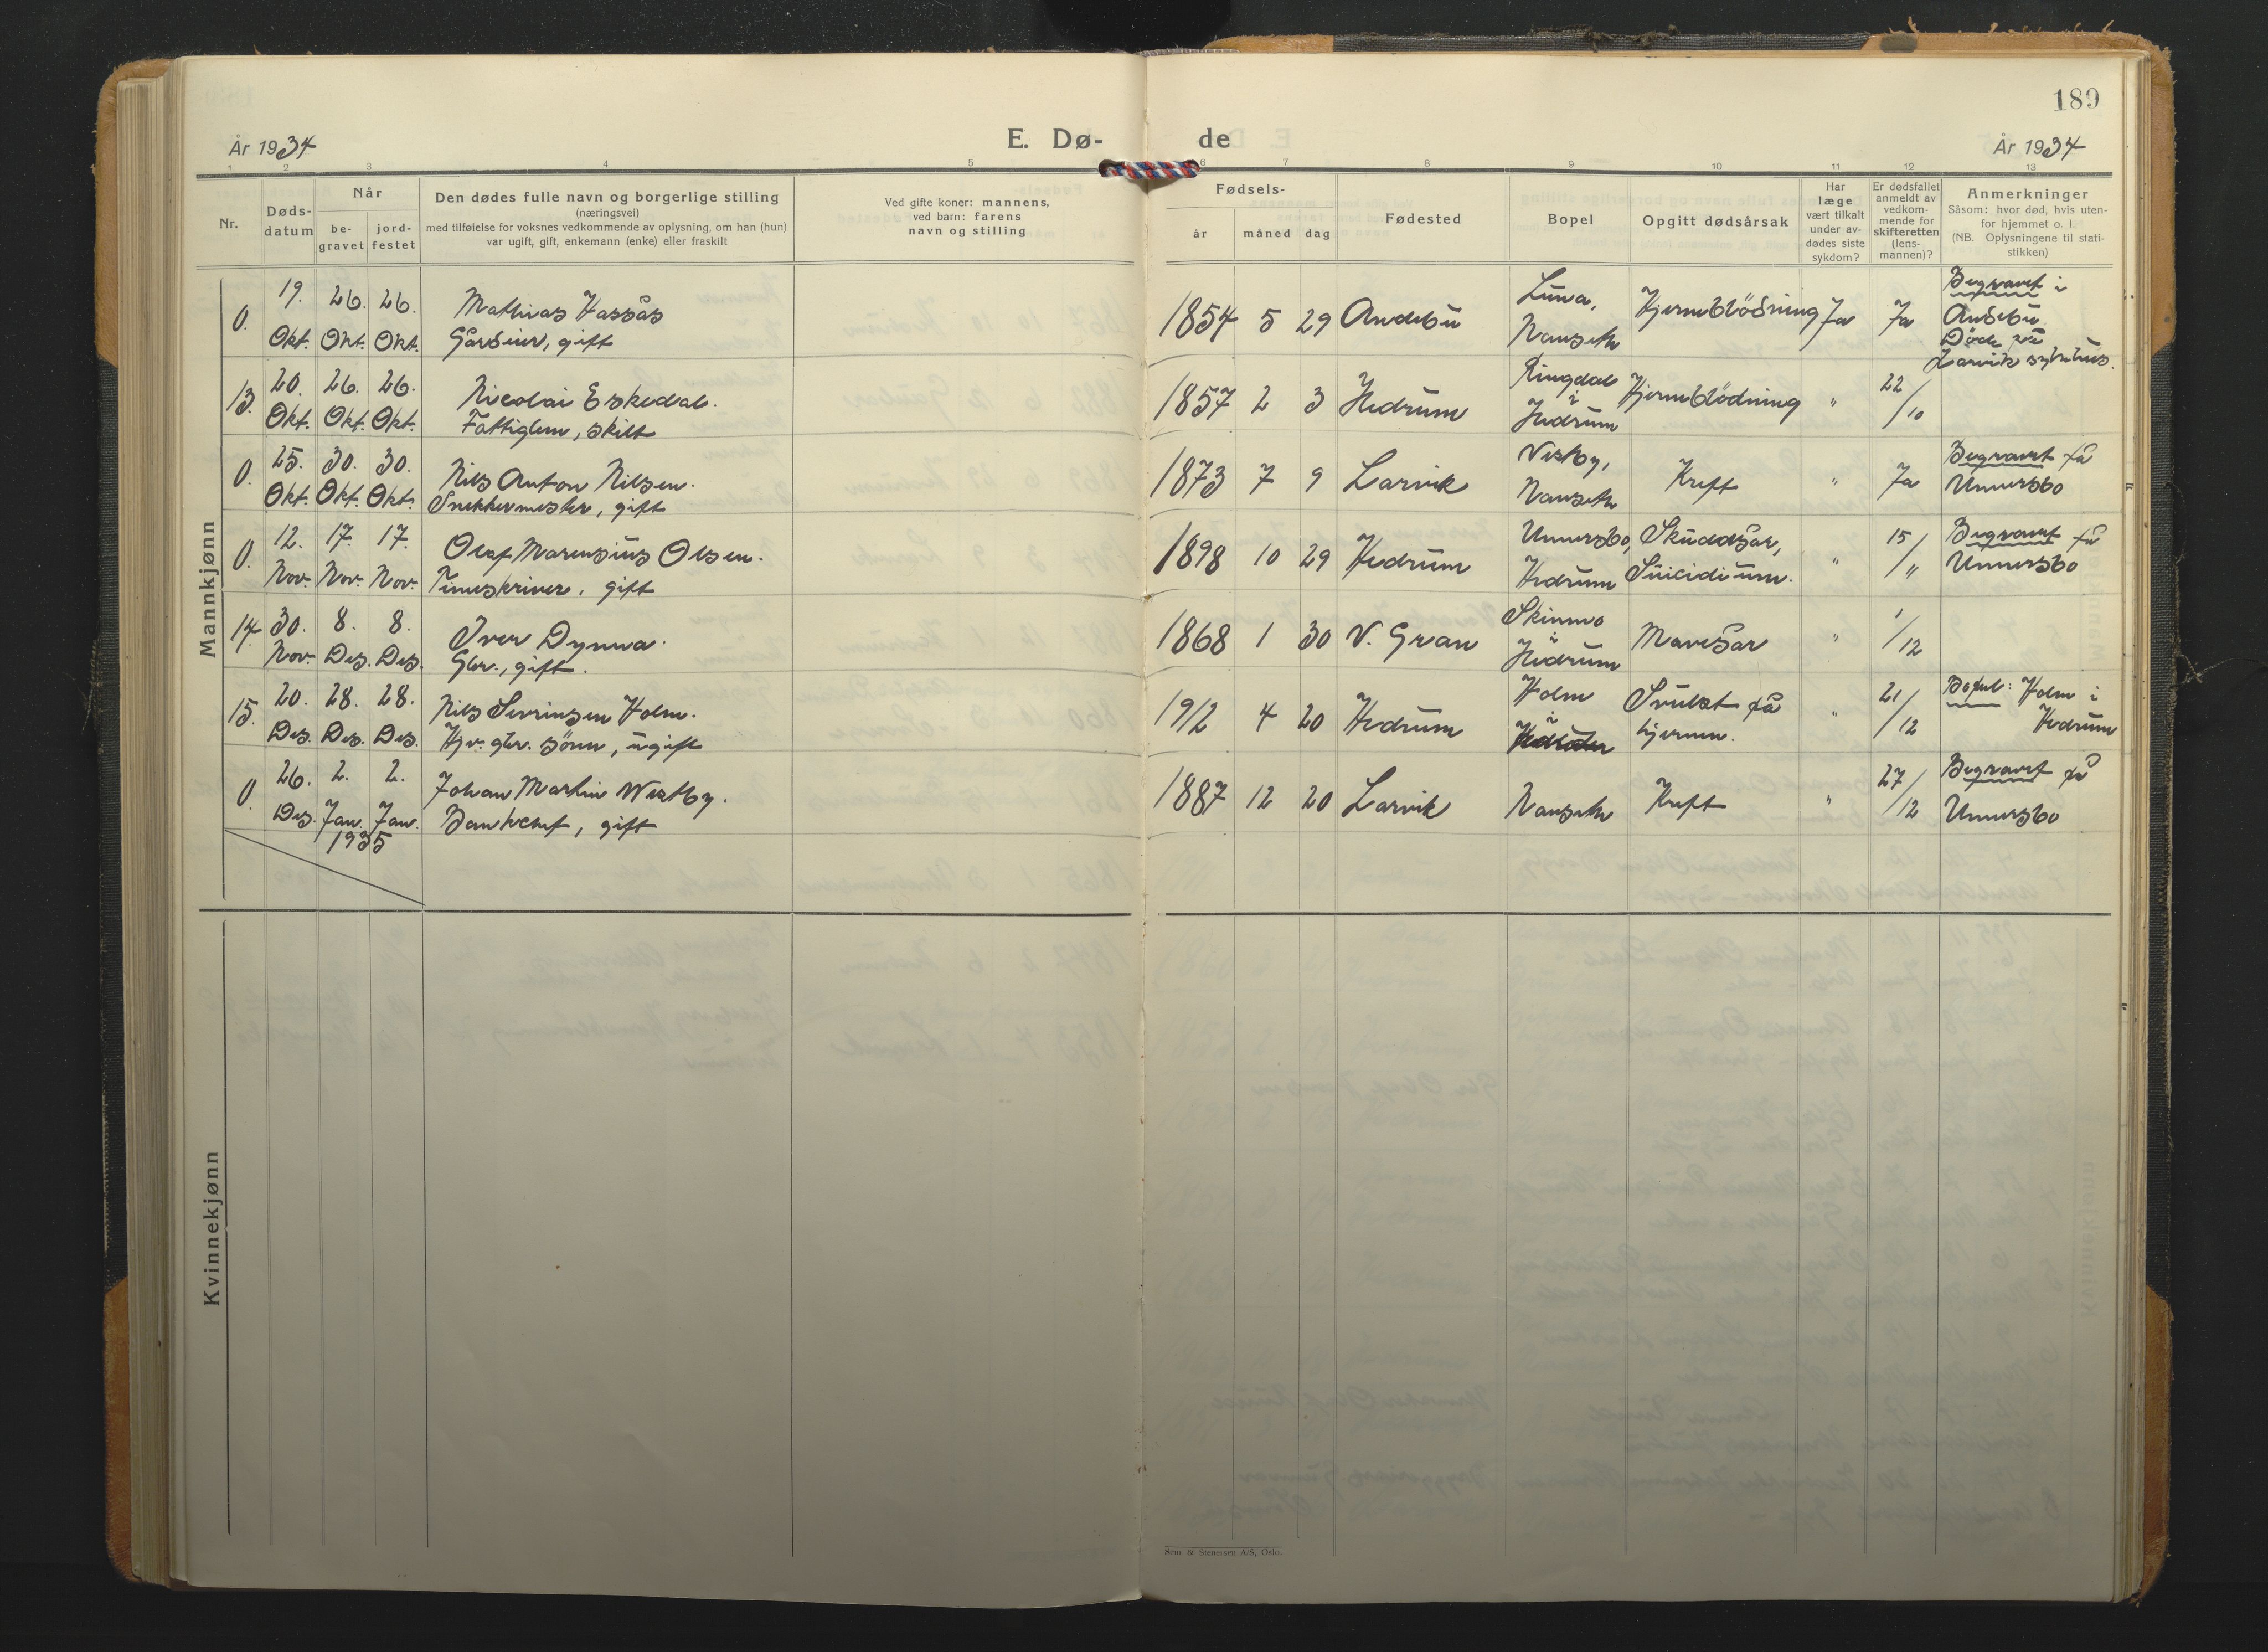 189
År 1934
E. Dø-
de
År 1934
1 2 3 4 5 6 7 8 9 10 11 12 13
Nr.
Døds-
datum
Når
be-
gravet
jord-
festet
Den dødes fulle navn og borgerlige stilling
(næringsvei)
med tilføielse for voksnes vedkommende av oplysning, om han (hun)
var ugift, gift, enkemann (enke) eller fraskilt
Ved gifte koner: mannens,
ved barn: farens
navn og stilling
Fødsels-
år
måned
dag
Fødested
Bopel
Opgitt dødsårsak
Har
læge
vært tilkalt
under av-
dødes siste
sykdom?
Er dødsfallet
anmeldt av
vedkom-
mende for
skifteretten
(lens-
mannen)?
Anmerkninger
Såsom: hvor død, hvis uten-
for hjemmet o. l.
(NB. Oplysningene til stati-
stikken)
Mannkjønn
0. 19. Okt. 26. Okt. 26. Okt.
Mathias Hassås
Gårdeier, gift
1854 5 29 Andebu
Nanseth
Hjerneblödning Ja Ja
Begravet i
Andebu
Döde på
Larvik sykehus.
13. 20. Okt. 26. Okt. 26. Okt.
Nicolai Eskedal.
Fattiglem, skilt
1857 2 3 Hedrum
Ringdal
i
Hedrum
Hjerneblödning " 22/10
0. 25. Okt. 30. Okt. 30. Okt.
Nils Anton Nilsen.
Snekkermester, gift
1873 7 9 Larvik
Vestby,
Nanseth
Kreft " Ja
Begravet på
Undersbo
0. 12. Nov. 17. Nov. 17. Nov.
Olaf Marensius Olsen.
Timeskriver, gift
1898 10 29 Hedrum
Undersbo,
Hedrum
Skuddsår,
Suicidium. " 15/"
Begravet på
Undersbo
14. 30. Nov. 8. Des. 8. Des.
Iver Dynna.
Gbr., gift.
1868 1 30 V. Gran
Skinmo
i
Hedrum
Mavesår " 1/12
15. 20. Des. 28. Des. 28. Des.
Nils Severinsen Holm.
Hjv. gbr. sönn, ugift
1912 4 20 Hedrum
Holm
i
Svulst på
hjernen. " 21/12
Bopel: Holm i
Hedrum
0. 26. Des. 2. Jan. 2. Jan.
1935
Johan Martin Westby.
Bankchef, gift
1887 12 20 Larvik
Nanseth
Kreft " 27/12
Begravet på
Undersbo
Kvinnekjønn
Sem & Stenersen A/S, Oslo.